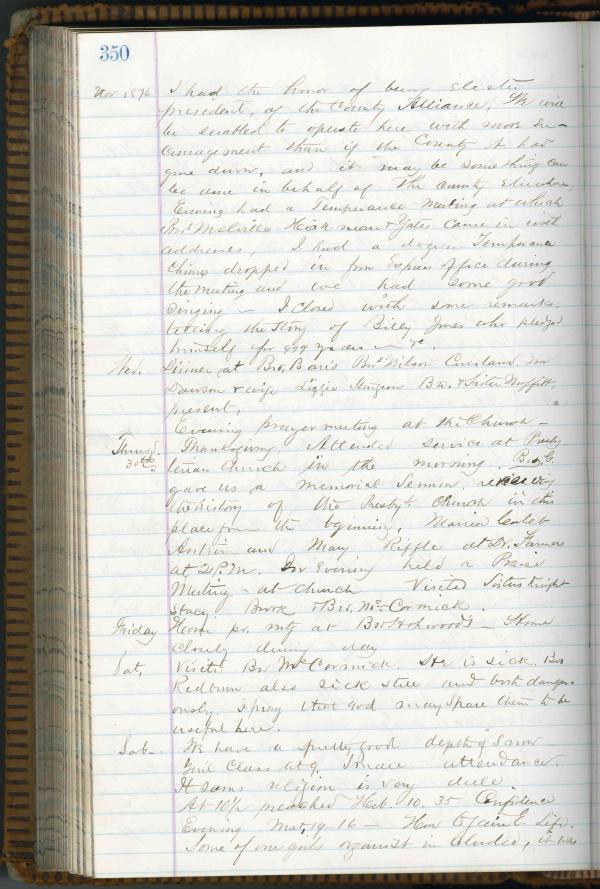 350
Nov 1876 I had the honor of being elected
president, of the County Alliance. We will
be enabled to operate here with more en-
couragement than if the County A had
gone down, and it may be something can
be done in behalf of the county elsewhere
Evening had a Temperance Meeting at which
Bros & Yates came in with
addresses, I had a dozen Temperance
Chimes dropped in from Express office during
the meeting and we had some good
singing — I closed with some remarks,
telling the story of Billy Jones who pledged
himself for 999 years — &c.
Wed. Dinner at Bro. Bro Wilson
Dawson & wife Lizzie Sturgeon Bro. & Sister Moffitt,
present,
Evening prayer meeting at the Church —
Thursd. Thanksgiving Attended service at Presby-
30th terian Church in the morning. Bro. G.
gave us a memorial sermon, reviewing
the history of the Presbyt Church in this
place from the beginning. Married Caleb
and Mary Riffle at Dr. Farmers
at 2 P.M. In Evening held a Praise
Meeting at Church Visited Sisters Knight
Stacy, Brook & Bro. McCormick.
Friday Home pr. mtg at Bro — Home
closely during day
Sat, Visits Bro McCormick. He is sick. Bro
Redburn also sick still and both danger-
ously. I pray that God may spare them to be
useful here.
Sab — We have a pretty good depth of Snow —
Class at 9. attendance.
It seems religion is very dull.
At 10½ preached Heb. 10. 35 Confidence
Evening Mat, 19. 16 — How to gain E. Life.
Some of our girls organist in, it was